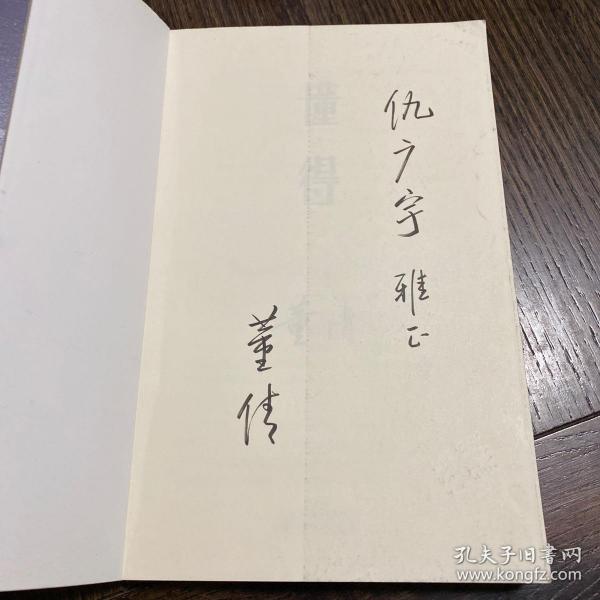 仇广宇 雅正
董倩
懂得
孔夫子旧书网
www.kongfz.com